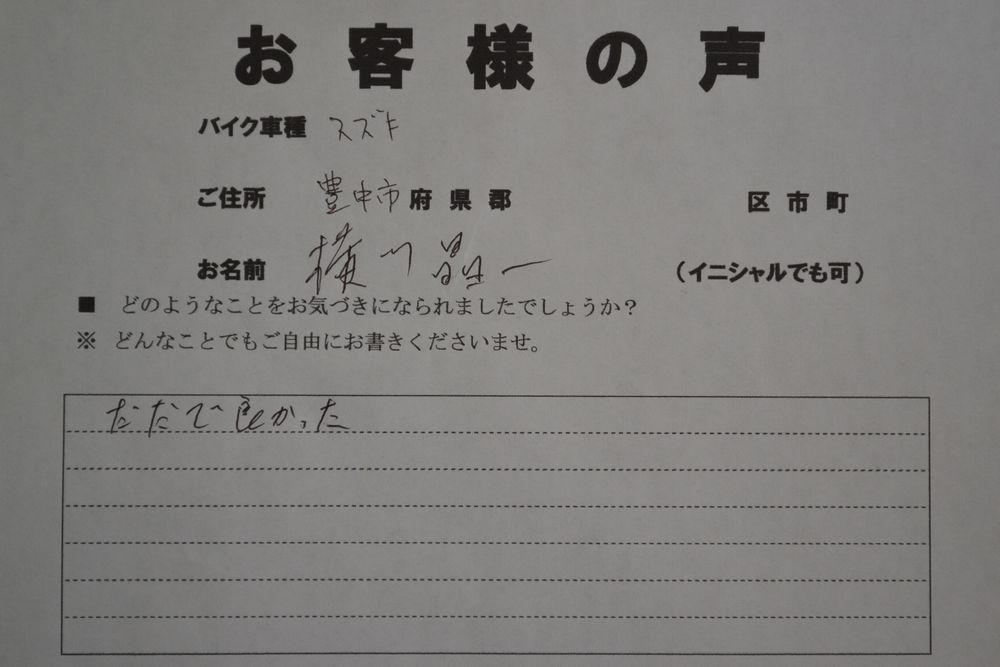 お客様の声
バイク車種 スズキ
ご住所 豊中市 府 県 郡 区 市 町
お名前 横川 昌一 (イニシャルでも可)
■ どのようなことをお気づきになられましたでしょうか?
※ どんなことでもご自由にお書きくださいませ。
ただで良かった